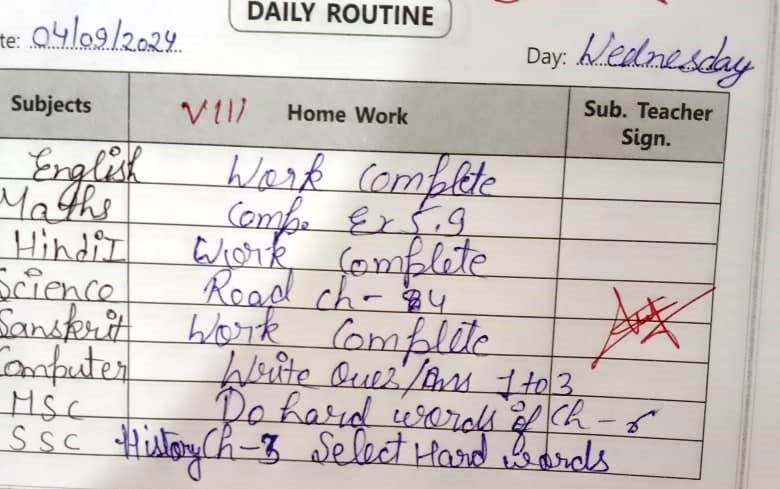 DAILY ROUTINE
te: 04/09/2024
Day: Wednesday
Subjects VIII Home Work Sub. Teacher Sign.
English Work Complete
Maths Comp. Ex 5.9
Hindi I Work Complete
Science Read ch- 4
Sanskrit Work Complete
Computer Write Ques/Ans 1 to 3
MSC Do hard words of Ch -
SSC History Ch-3 Select Hard words